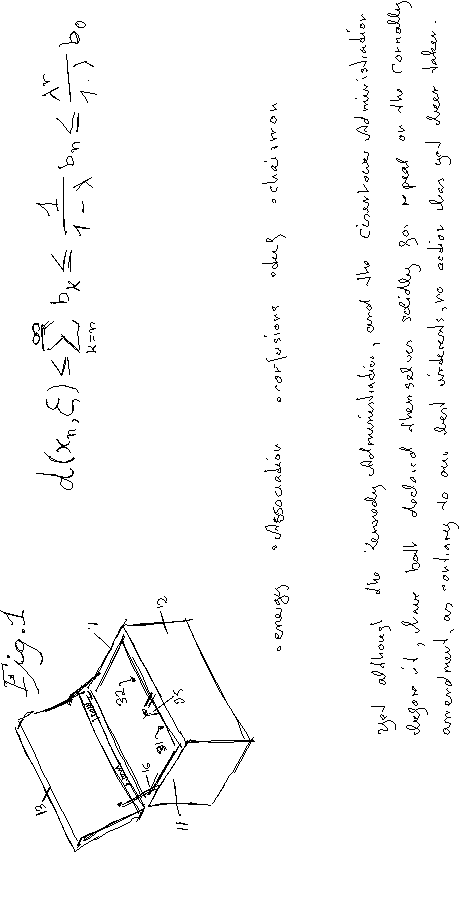 Fig.1
13
11
12
32
25
18
16
11
d(x_n, ξ) ≤ \sum_{k=n}^{∞} b_k ≤ \frac{1}{1-λ} b_n ≤ \frac{λ^n}{1-λ} b_0
• energy • Association • confusions • duty • chairman
yet although the Kennedy Administration, and the Eisenhower Administration
before it, have both declared themselves solidly for repeal on the Connally
amendment, as contrary to our best interests, no action has yet been taken.